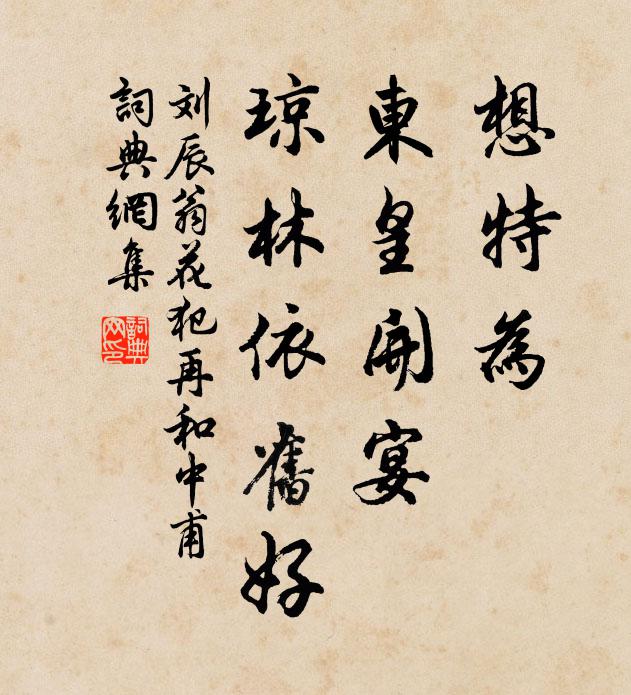 想特為
東皇開宴
琼林依舊好
刘辰翁花犯再和中甫
詞典網集
詞典網印